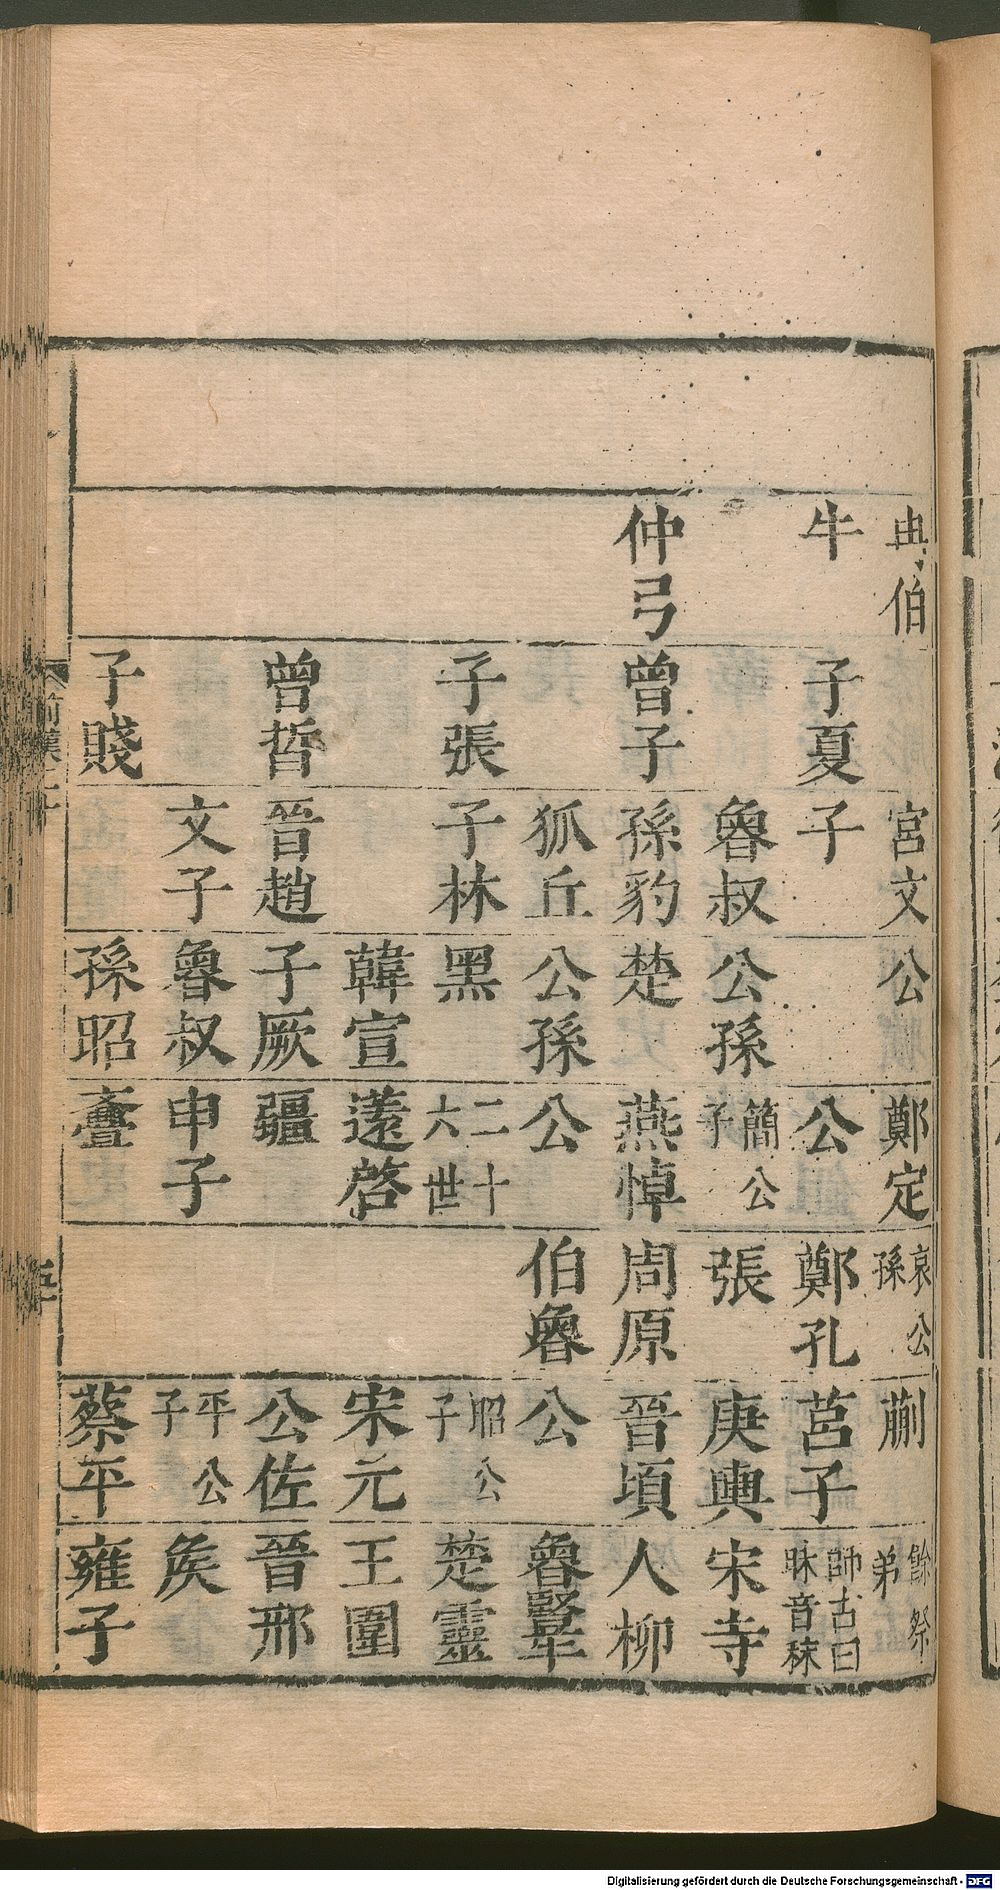 冉伯 宮文 公 鄭定 哀公孫 蒯 餘祭弟
牛 子夏 子 公 鄭孔 莒子 師古曰眜音秣
魯叔 公孫 簡公子 張 庚輿 宋寺
仲弓 曾子 孫豹 楚 燕悼 周原 晉頃 人柳
狐丘 公孫 公 伯魯 公 魯豎牛
子張 子林 黑 二十六世 昭公子 楚靈
韓宣 薳啓 宋元 王圍
曾晳 晉趙 子厥 疆 公佐 晉邢
文子 魯叔 申子 平公子 矦
子賤 孫昭 蔡平 雍子
前漢二十
Digitalisierung gefördert durch die Deutsche Forschungsgemeinschaft - DFG